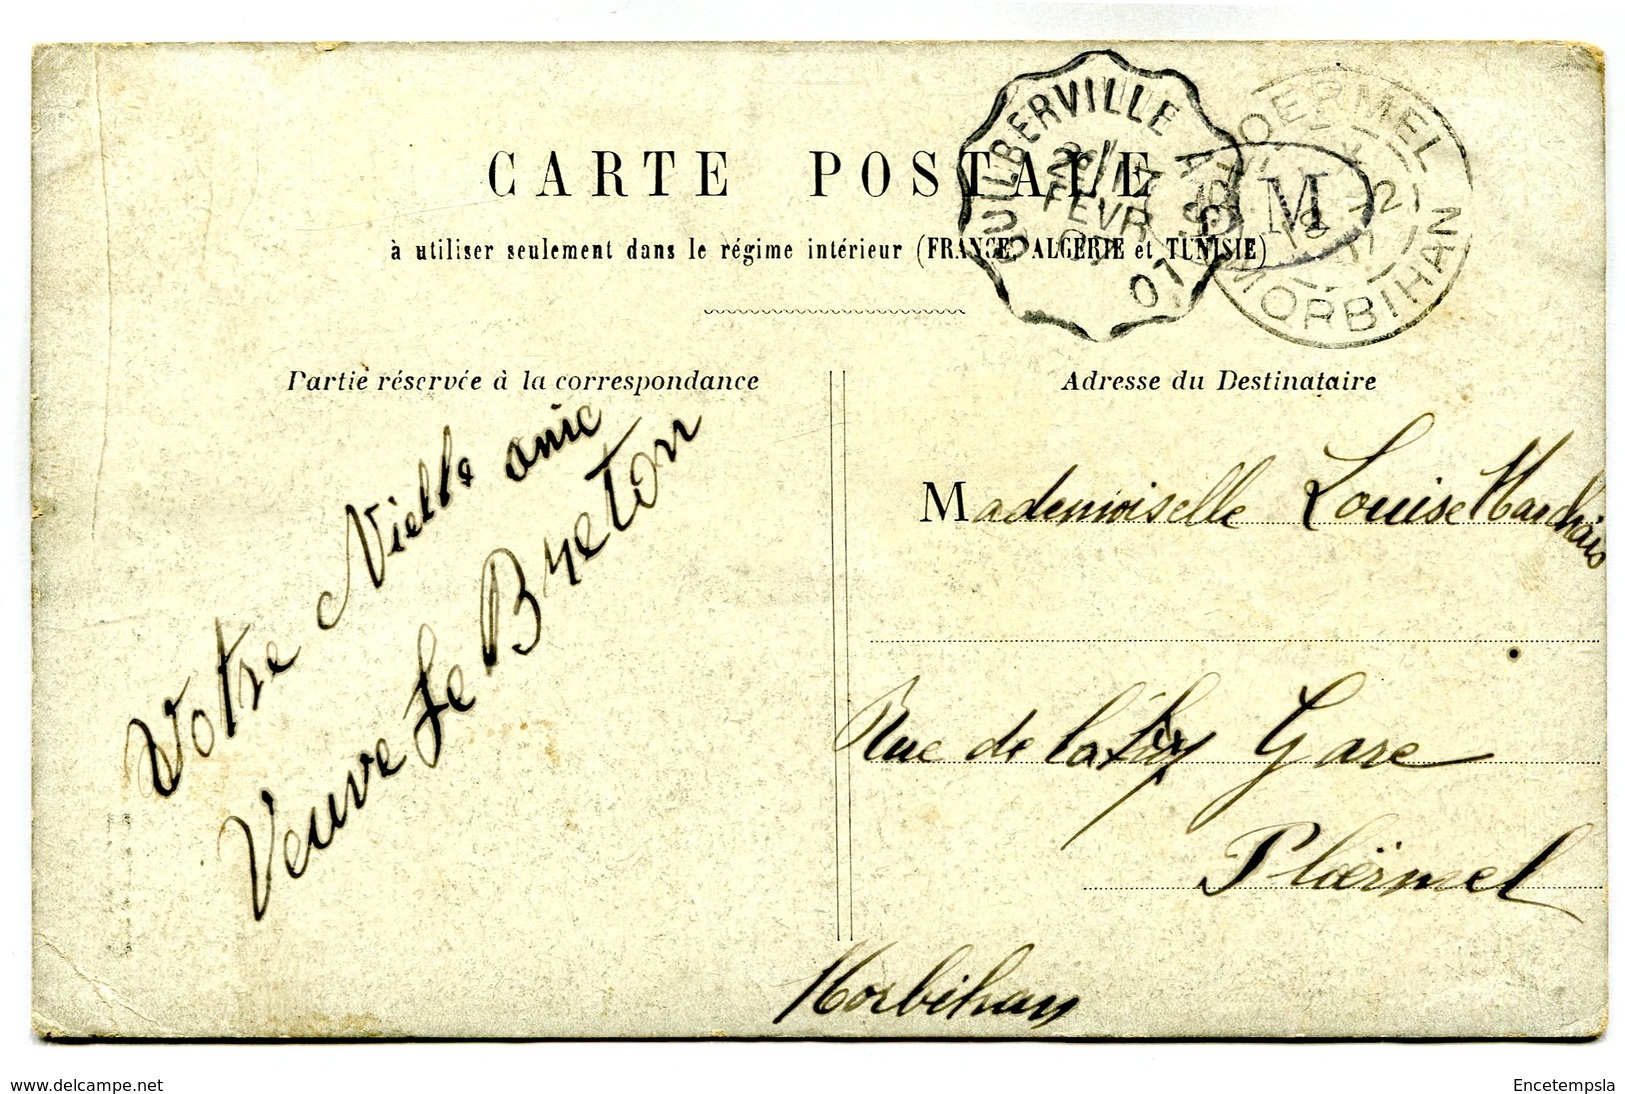 CARTE POSTALE
à utiliser seulement dans le régime intérieur (FRANCE, ALGÉRIE et TUNISIE)
GUILBERVILLE A
FEVR
07
07
PLOERMEL
MORBIHAN
BM
Partie réservée à la correspondance
Votre Vielle amie
Veuve Le Breton
Adresse du Destinataire
Mademoiselle Louise Marchais
Rue de la Gare
Ploërmel
Morbihan
www.delcampe.net
Encetempsla